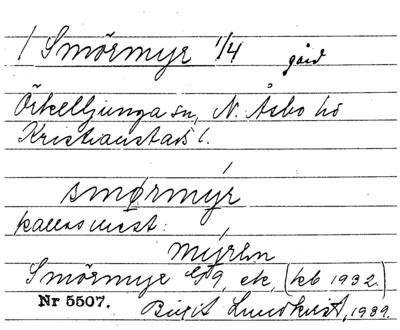 / Smörmyr 1/4 gård
Örkelljunga sn, N. Åsbo hd
Kristianstads l.
smørmýr
kallas mest:
mýrən
Smörmyr 1/9, ek, (kb 1932.)
Nr 5507. Birgit Lundkvist, 1939.